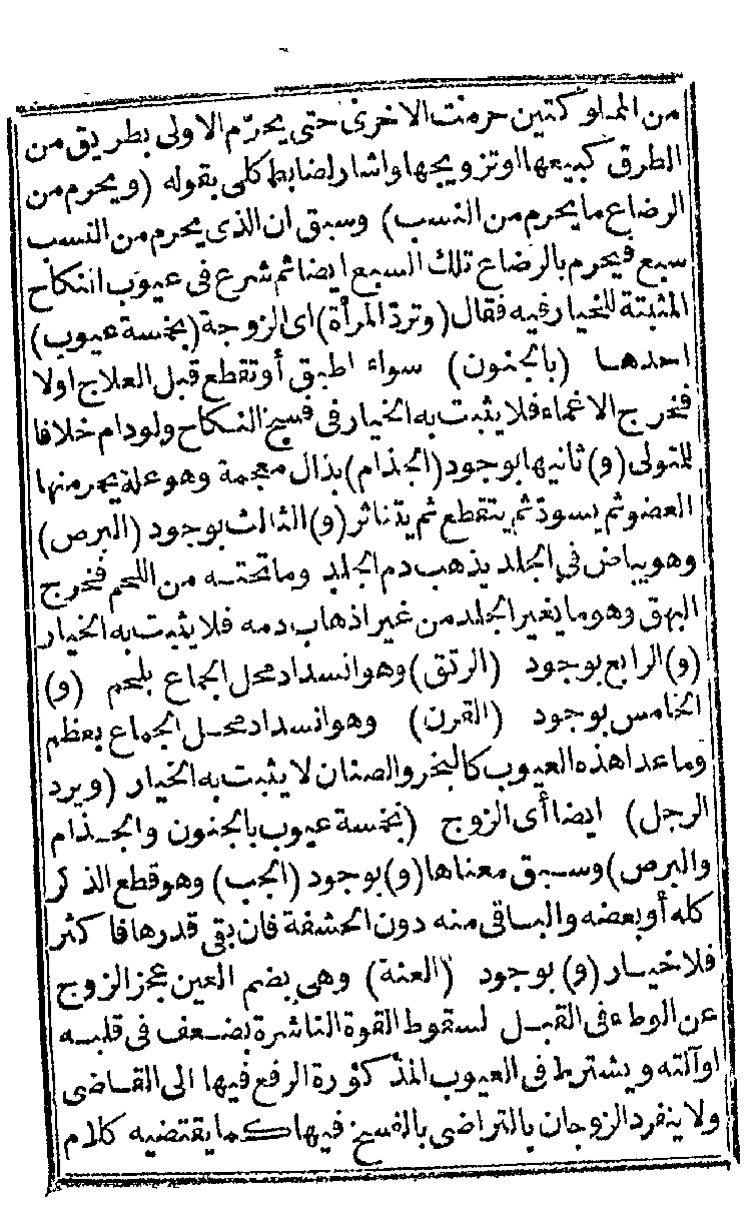 من المملوكتين حرمت الاخرى حتى يحرّم الاولى بطريق من
الطرق كبيعها او تزويجها واشار لضابط كلى بقوله (ويحرم من
الرضاع ما يحرم من النسب) وسبق ان الذى يحرم من النسب
سبع فيحرم بالرضاع تلك السبع ايضا ثم شرع فى عيوب النكاح
المثبتة للخيار فيه فقال (وتردّ المرأة) اى الزوجة (بخمسة عيوب)
احدها (بالجنون) سواء اطبق أو تقطع قبل العلاج اولا
فخرج الاغماء فلا يثبت به الخيار فى فسخ النكاح ولو دام خلافا
للمتولى (و) ثانيها بوجود (الجذام) بذال معجمة وهو علة يحمر منها
العضو ثم يسودّ ثم يتقطع ثم يتناثر (و) الثالث بوجود (البرص)
وهو بياض فى الجلد يذهب دم الجلد وما تحتـه من اللحم فخرج
البهق وهو ما يغير الجلد من غير اذهاب دمه فلا يثبت به الخيار
(و) الرابع بوجود (الرتق) وهو انسداد محل الجماع بلحم (و)
الخامس بوجود (القرن) وهو انسداد محـل الجماع بعظم
وما عدا هذه العيوب كالبخر والصنان لا يثبت به الخيار (ويرد
الرجل) ايضا أى الزوج (بخمسة عيوب بالجنون والجـذام
والبرص) وسـبق معناها (و) بوجود (الجب) وهو قطع الذكر
كله أو بعضه والباقى منه دون الحشفة فان بقى قدرها فاكثر
فلا خيـار (و) بوجود (العنة) وهى بضم العين عجز الزوج
عن الوطء فى القبـل لسقوط القوة الناشرة بضـعف فى قلبـه
او آلته ويشترط فى العيوب المذكورة الرفع فيها الى القـاضى
ولا ينفرد الزوجان بالتراضى بالفسخ فيها كـما يقتضيه كلام